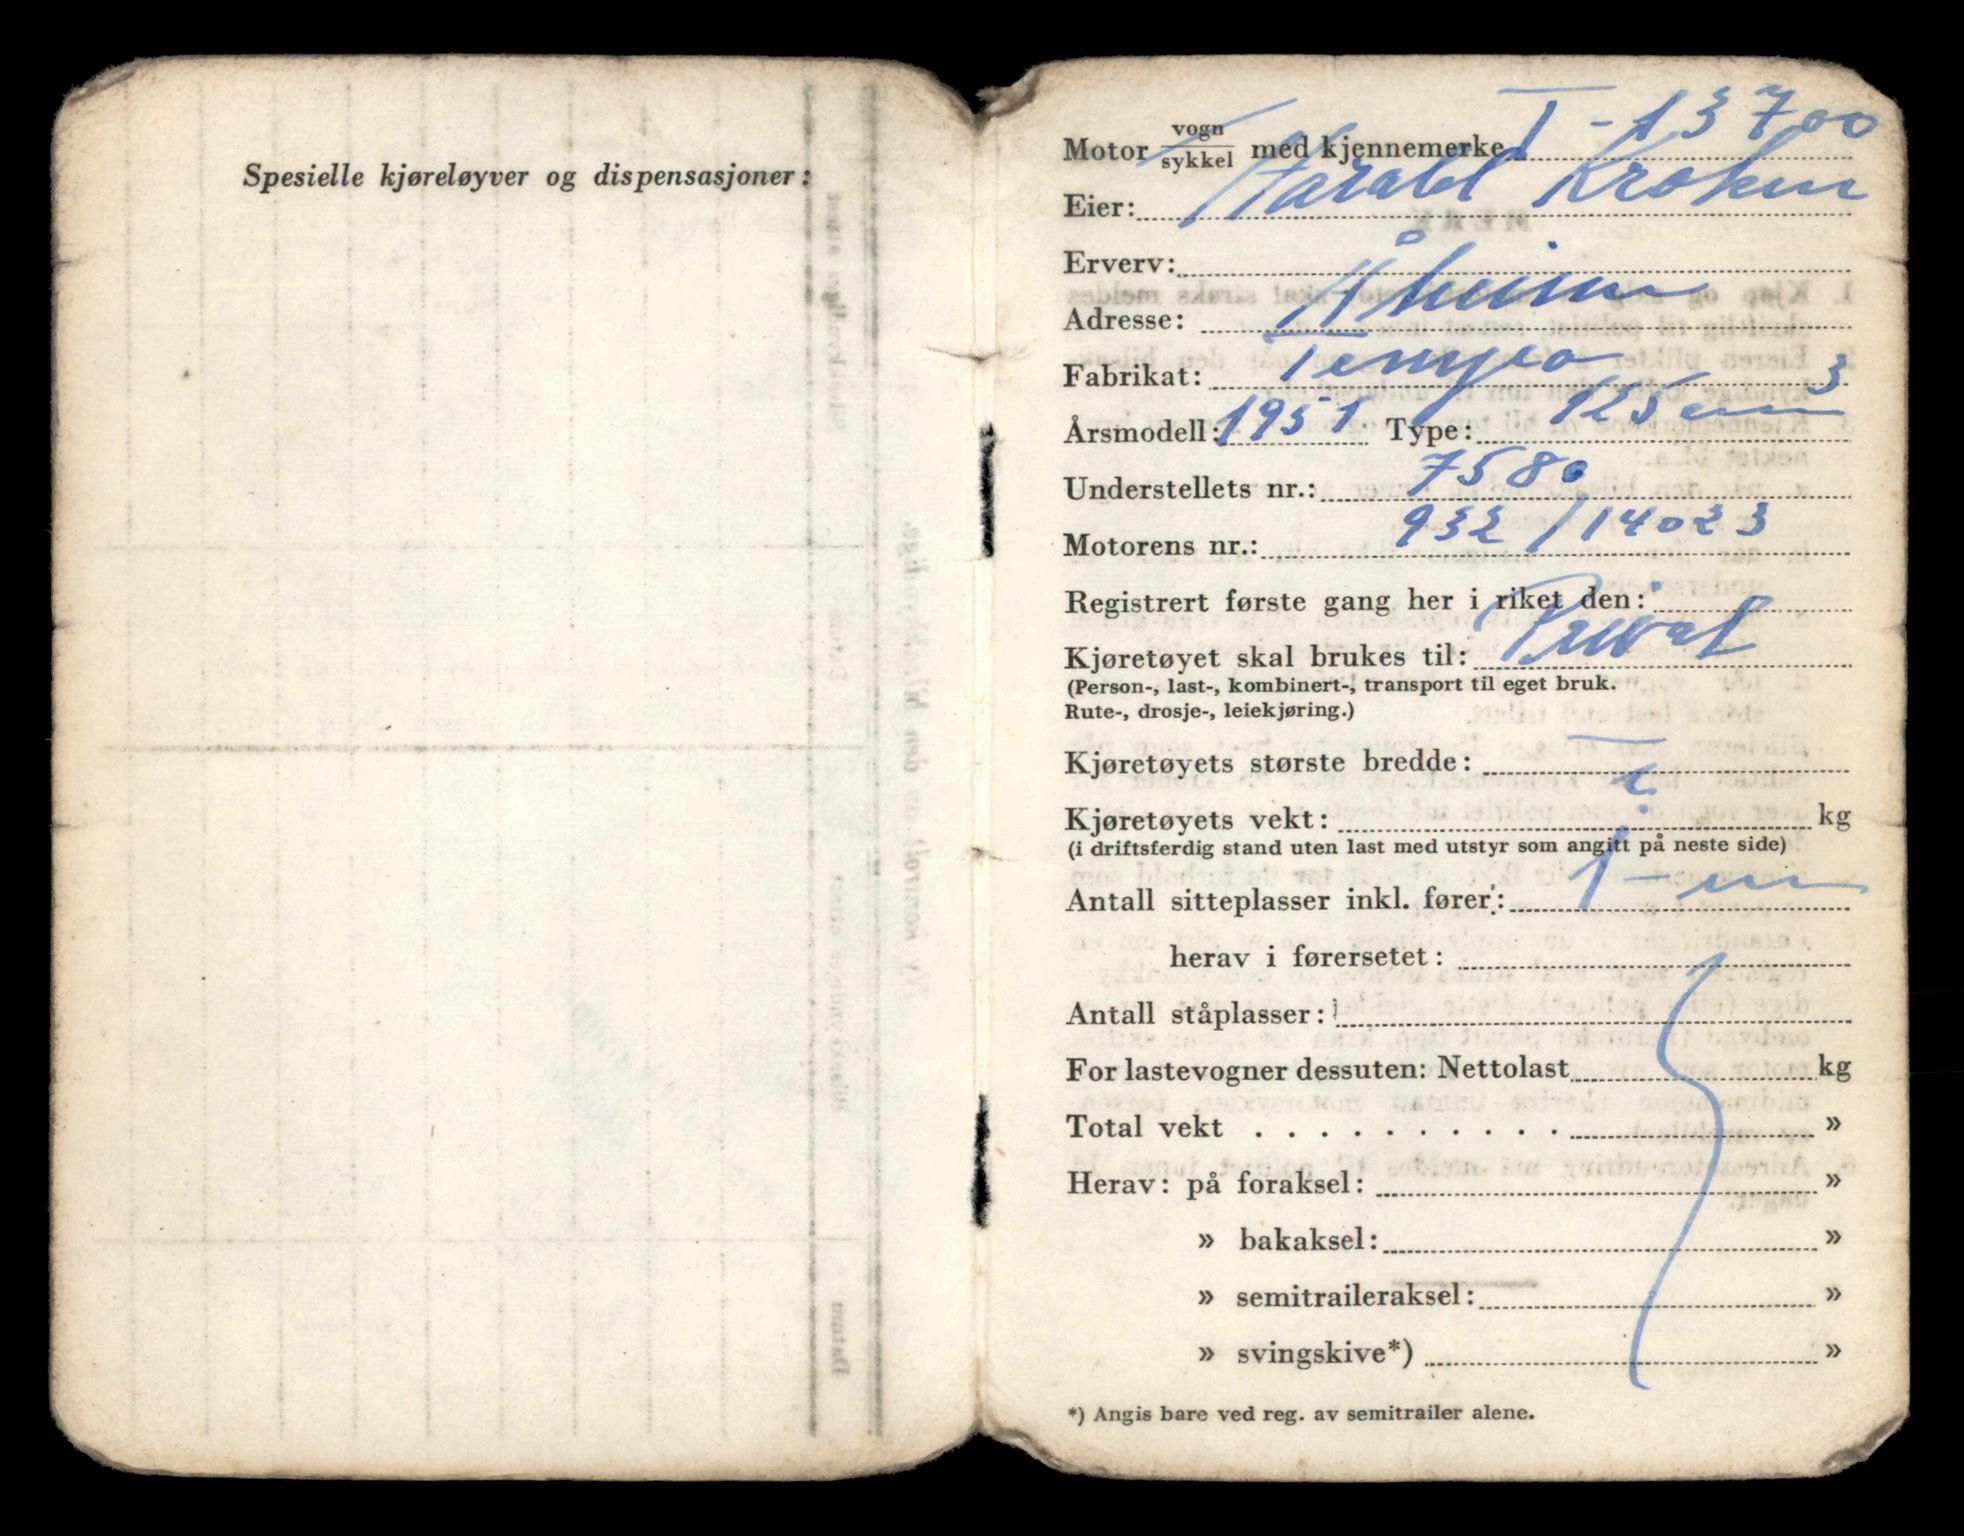 Spesielle kjøreløyver og dispensasjoner:
Motor vogn/sykkel med kjennemerke T-13700
Eier: Harald Kroken
Erverv:
Adresse: Åheim
Fabrikat: Tempo
Årsmodell: 1951 Type: 125 cm3
Understellets nr.: 7580
Motorens nr.: 932/14023
Registrert første gang her i riket den:
Kjøretøyet skal brukes til: Privat
(Person-, last-, kombinert-, transport til eget bruk.
Rute-, drosje-, leiekjøring.)
Kjøretøyets største bredde:
Kjøretøyets vekt: kg
(i driftsferdig stand uten last med utstyr som angitt på neste side)
Antall sitteplasser inkl. fører: 1-en
herav i førersetet:
Antall ståplasser:
For lastevogner dessuten: Nettolast kg
Total vekt . . . . . . . . . . . »
Herav: på foraksel: »
» bakaksel: »
» semitraileraksel: »
» svingskive*) »
*) Angis bare ved reg. av semitrailer alene.